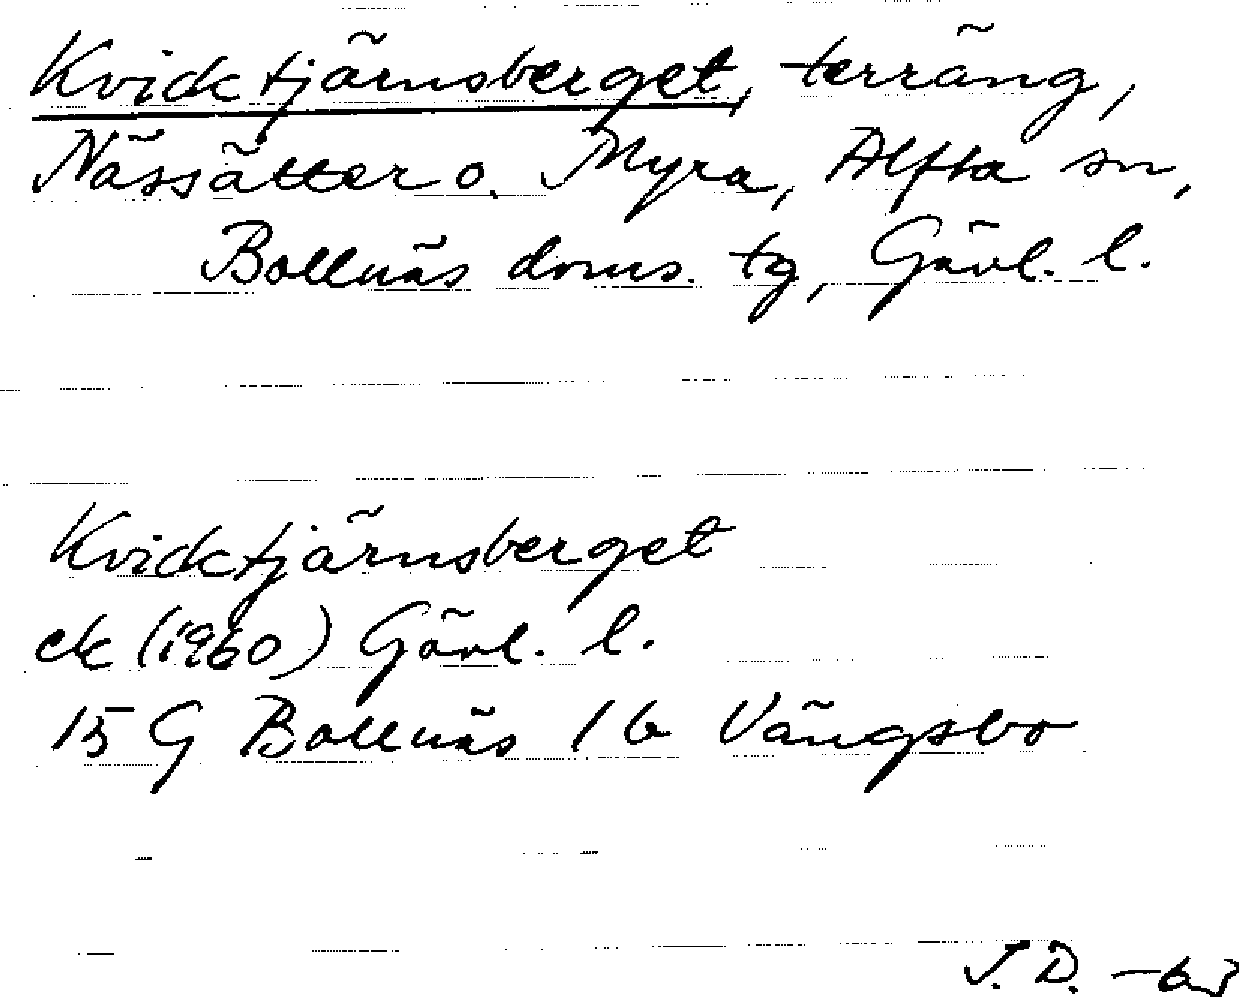 Kvicktjärnsberget, terräng,
Nässätter o. Myra, Alfta sn,
Bollnäs doms. tg, Gävl. l.
Kvicktjärnsberget
ek (1960) Gävl. l.
15 G Bollnäs 1 b Vängsbo
J. D. -63